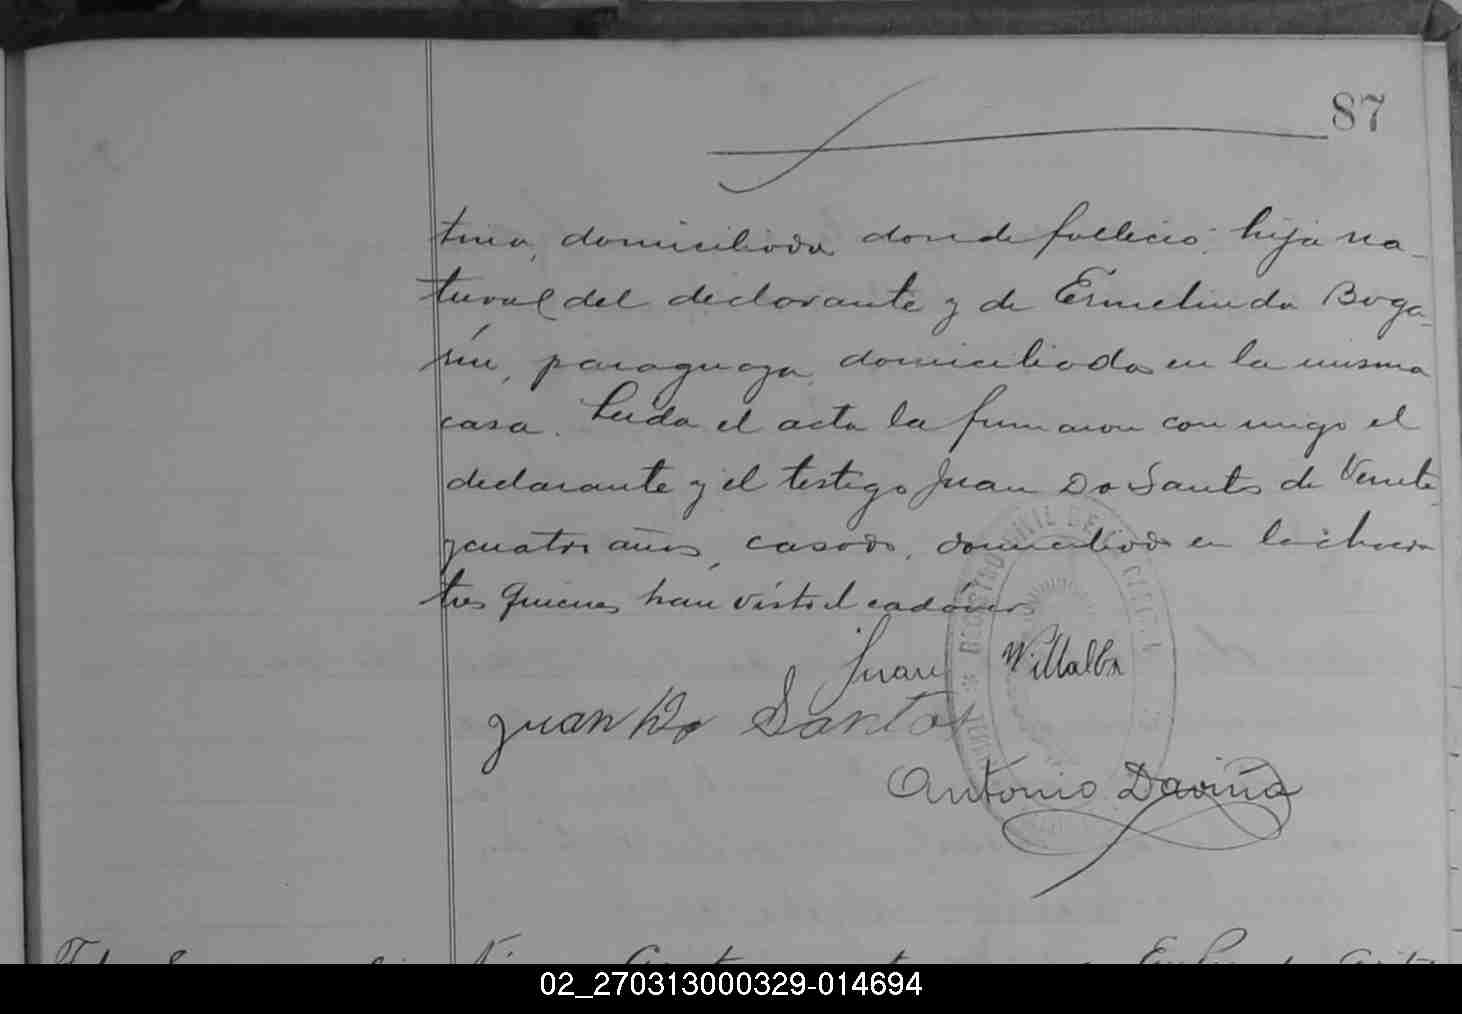 87
tina, domiciliada donde fallecio: hija na-
tural del declarante y de Ermelinda Boga-
rín, paraguaya, domiciliada en la misma
casa. Leida el acta la firmaron con migo el
declarante y el testigo Juan Do Santos de Veinte
ycuatro años, casado, domiciliado en la chacra
tres quienes han visto el cadáver
Juan Villalba
Juan Do Santos
Antonio Daviña
REGISTRO CIVIL DE LA CAPITAL
02_270313000329-014694